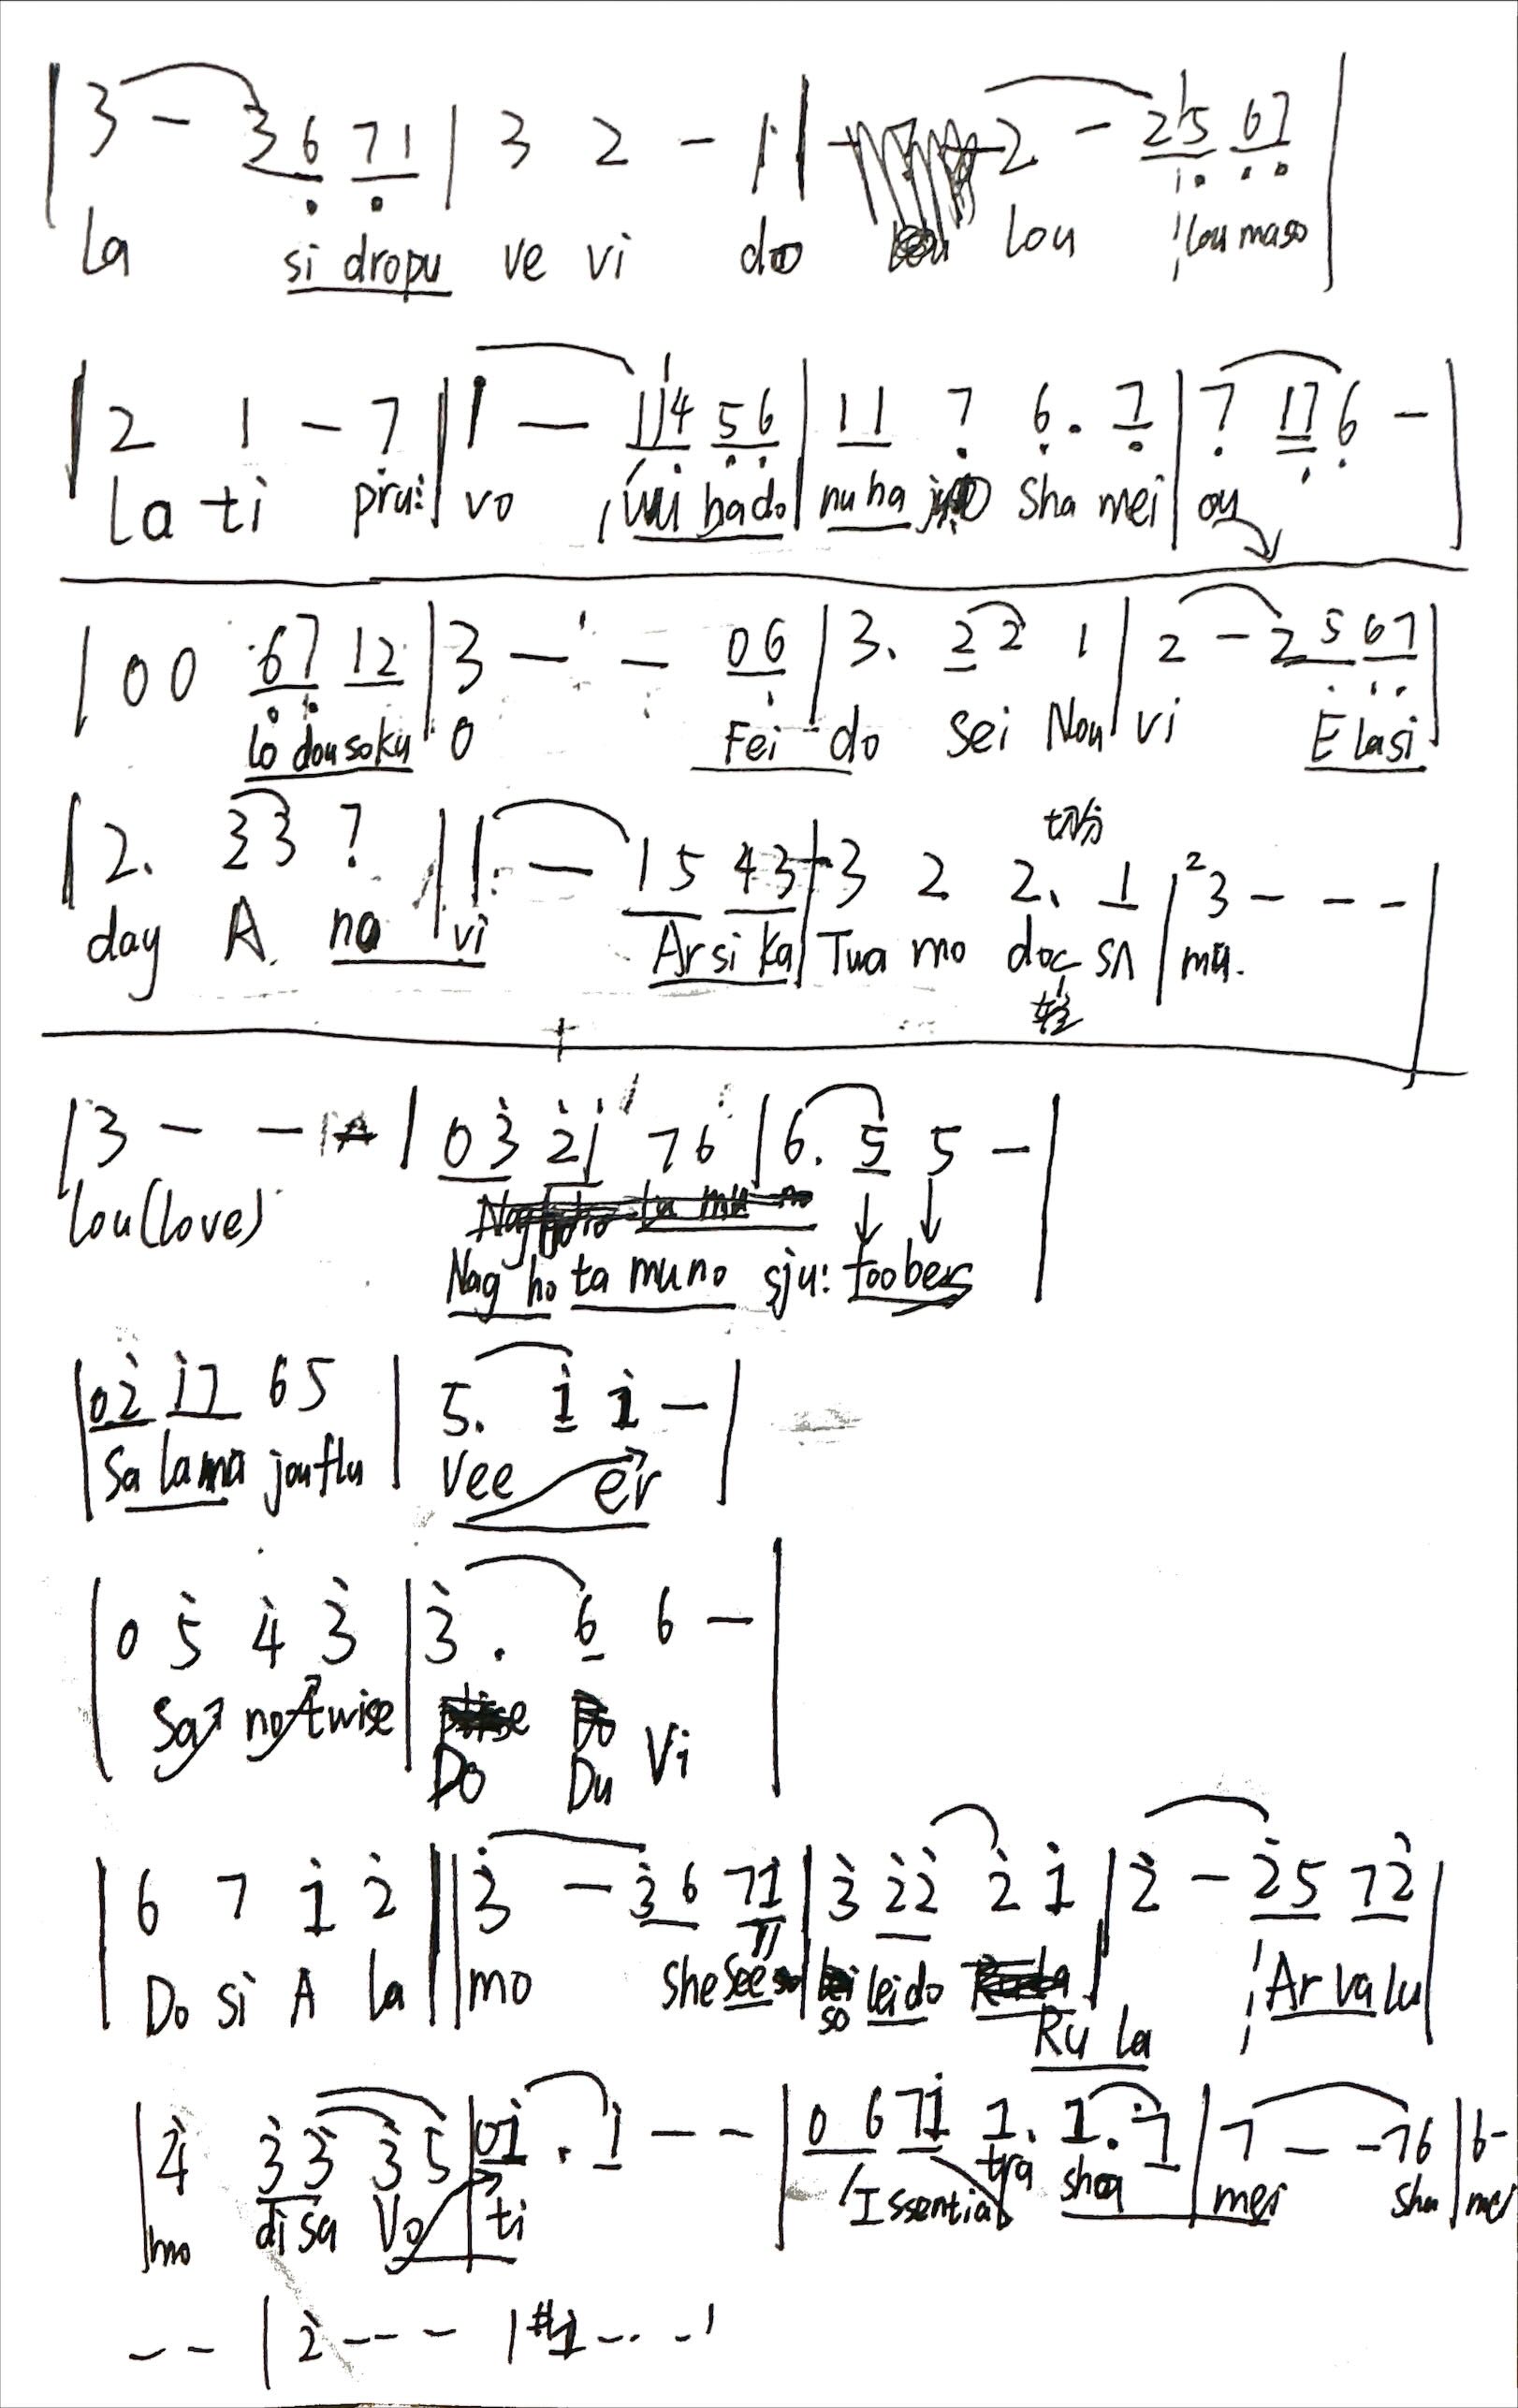 | 3 - 3 6 7 1 | 3 2 - 1 | 2 - 2 5 6 7 |
la si dropu ve vi do lou lou maso
| 2 1 - 7 || 1 - 1 4 5 6 | 1 1 7 6 . 7 | 7 1 7 6 - |
la ti prui vo bado nuha sha mei ou
| 0 0 6 7 1 2 | 3 - - 0 6 | 3 . 2 2 1 | 2 - 2 5 6 7 |
lo dou soku o Fei do sei Nou vi E lasi
| 2 . 3 3 7 || 1 - 1 5 4 3 | 3 2 2 . 1 | 2 3 - - - |
切分
day A na vi Ar si ka Tua mo doc sn mu.
| 3 - - | 0 3 2 1 7 6 | 6 . 5 5 - |
lou (love)
Nag ho ta muno sju: toobers
| 0 2 1 7 6 5 | 5 . 1 1 - |
Sa lama jouflu Vee er
| 0 5 4 3 | 3 . 6 6 - |
Sa notwise Do Du Vi
| 6 7 1 2 || 3 - 3 6 7 1 | 3 2 2 2 1 | 2 - 2 5 7 2 |
Do si A la mo she see so leido Ru la Ar valu
| 4 3 3 3 5 | 0 1 . 1 - - | 0 6 7 1 1 . 1 . 7 | 7 - - 7 6 | 6 -
mo disa Vo ti Issential tra shea mei sha mei
- - | 2 - - - | #1 - - - |